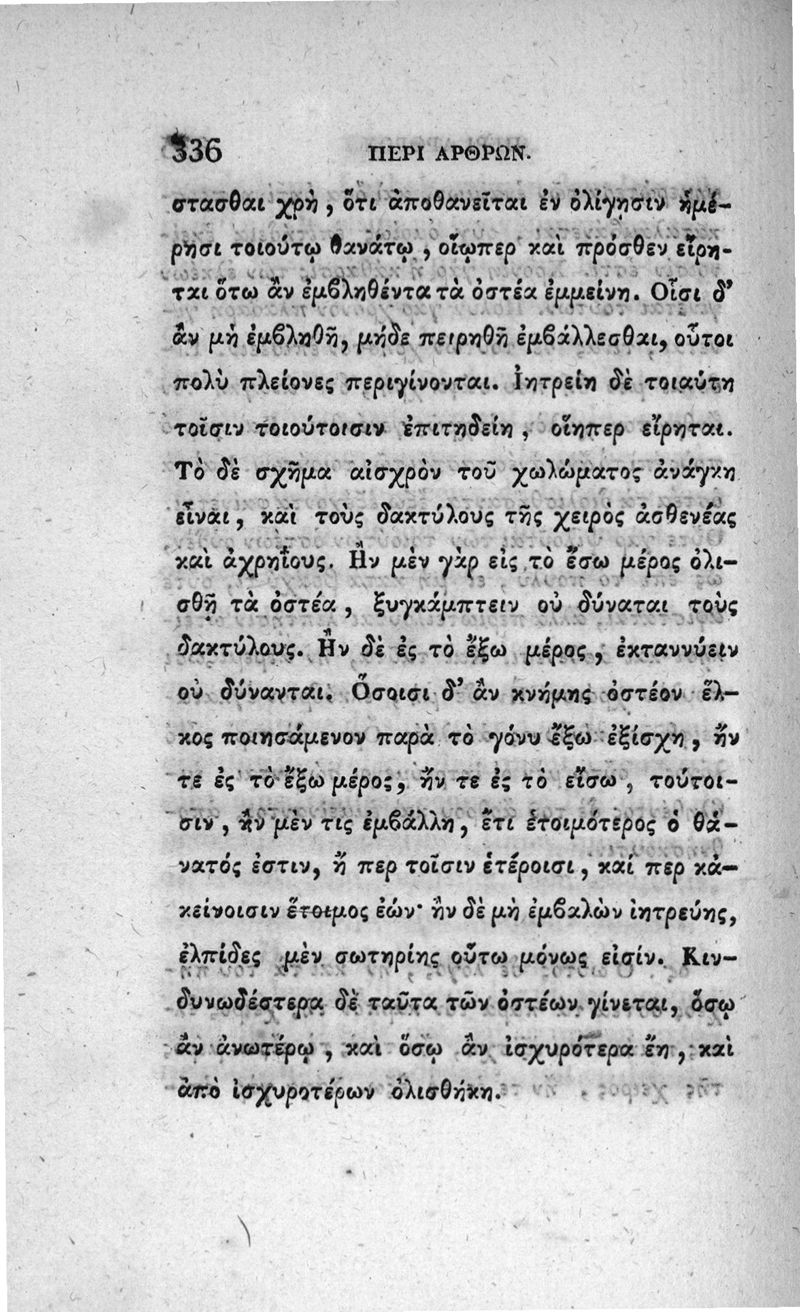 336 ΠΕΡΙ ΑΡΘΡΩΝ.
στασθαι χρὴ, ὅτι ἀποθανεῖται ἐν ὀλίγησιν ἡμέ-
ρῃσι τοιούτῳ θανάτῳ, οἵῳπερ καὶ πρόσθεν εἴρη-
ται ὅτω ἂν ἐμϐληθέντα τὰ ὀστέα ἐμμείνῃ. Οἷσι δ’
ἂν μὴ ἐμϐληθῇ, μήδε πειρηθῇ ἐμϐάλλεσθαι, οὗτοι
πολὺ πλείονες περιγίνονται. Ἰητρείη δὲ τοιαύτη
τοῖσιν τοιούτοισιν ἐπιτηδείη, οἵηπερ εἴρηται.
Τὸ δὲ σχῆμα αἰσχρὸν τοῦ χωλώματος ἀνάγκη
εἶναι, καὶ τοὺς δακτύλους τῆς χειρὸς ἀσθενέας
καὶ ἀχρηΐους. Ἢν μὲν γὰρ εἰς τὸ ἔσω μέρος ὀλι-
σθῇ τὰ ὀστέα, ξυγκάμπτειν οὐ δύναται τοὺς
δακτύλους. Ἢν δὲ ἐς τὸ ἔξω μέρος, ἐκταννύειν
οὐ δύνανται. Ὅσοισι δ’ ἂν κνήμης ὀστέον ἕλ-
κος ποιησάμενον παρὰ τὸ γόνυ ἔξω ἐξίσχῃ, ἤν
τε ἐς τὸ ἔξω μέρος, ἤν τε ἐς τὸ εἴσω, τούτοι-
σιν, ἢν μὲν τις ἐμϐάλλῃ, ἔτι ἑτοιμότερος ὁ θά-
νατός ἐστιν, ἤ περ τοῖσιν ἑτέροισι, καί περ κἀ-
κείνοισιν ἕτοιμος ἐών· ἢν δὲ μὴ ἐμϐαλὼν ἰητρεύῃς,
ἐλπίδες μὲν σωτηρίης οὕτω μόνως εἰσίν. Κιν-
δυνωδέστερα δὲ ταῦτα τῶν ὀστέων γίνεται, ὅσῳ
ἂν ἀνωτέρῳ, καὶ ὅσῳ ἂν ἰσχυρότερα ἔη, καὶ
ἀπὸ ἰσχυροτέρων ὀλισθήκῃ.